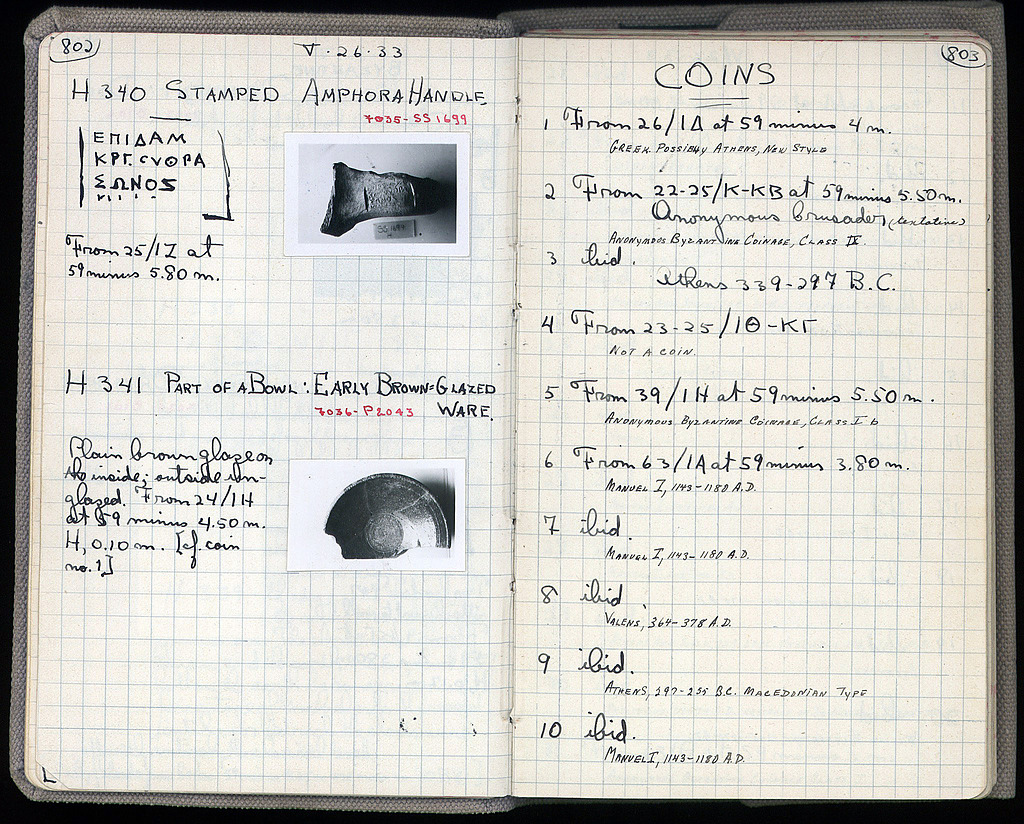 802
V · 26 · 33
H 340 STAMPED AMPHORA HANDLE
7035 - SS 1699
ΕΠΙΔΑΜ
ΣΩΝΟΣ
SS 1699
From 25/ΙΖ at
59 minus 5.80 m.
H 341 PART OF A BOWL : EARLY BROWN=GLAZED
7036 - P 2043 WARE.
Plain brown glaze on
the inside; outside un-
glazed. From 24/ΙΗ
at 59 minus 4.50 m.
H, 0.10 m. [cf. coin
no. 1]
803
COINS
1 From 26/ΙΔ at 59 minus 4 m.
GREEK POSSIBLY ATHENS, NEW STYLE
2 From 22-25/Κ-ΚΒ at 59 minus 5.50 m.
Anonymous Crusader, (tentative)
ANONYMOUS BYZANTINE COINAGE, CLASS IX.
3 ibid.
Athens 339-297 B.C.
4 From 23-25/ΙΘ-ΚΓ
NOT A COIN.
5 From 39/ΙΗ at 59 minus 5.50 m.
ANONYMOUS BYZANTINE COINAGE, CLASS I b
6 From 63/ΙΑ at 59 minus 3.80 m.
MANUEL I, 1143-1180 A.D.
7 ibid.
MANUEL I, 1143-1180 A.D.
8 ibid
VALENS, 364-378 A.D.
9 ibid.
ATHENS, 297-255 B.C. MACEDONIAN TYPE
10 ibid.
MANUEL I, 1143-1180 A.D.